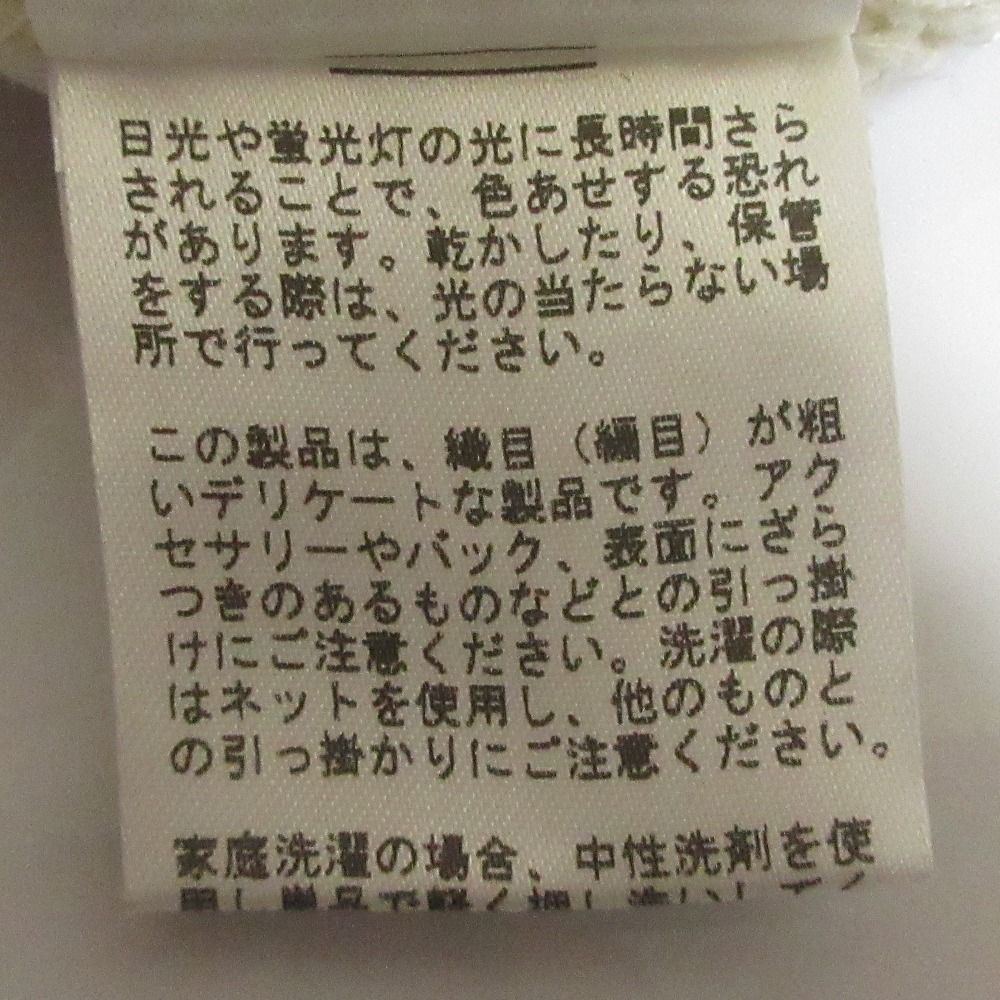 日光や蛍光灯の光に長時間さら
されることで、色あせする恐れ
があります。乾かしたり、保管
をする際は、光の当たらない場
所で行ってください。
この製品は、織目（編目）が粗
いデリケートな製品です。アク
セサリーやバック、表面にざら
つきのあるものなどとの引っ掛
けにご注意ください。洗濯の際
はネットを使用し、他のものと
の引っ掛かりにご注意ください。
家庭洗濯の場合、中性洗剤を使
用し単品で軽く押し洗いして